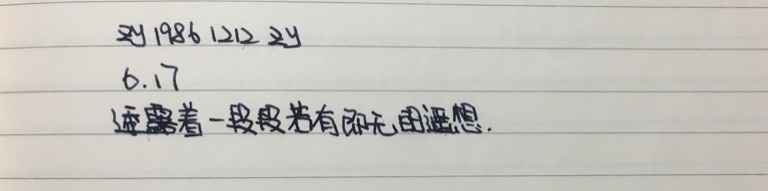 zy19861212zy
6.17
透露着一段段若有即无的遐想.